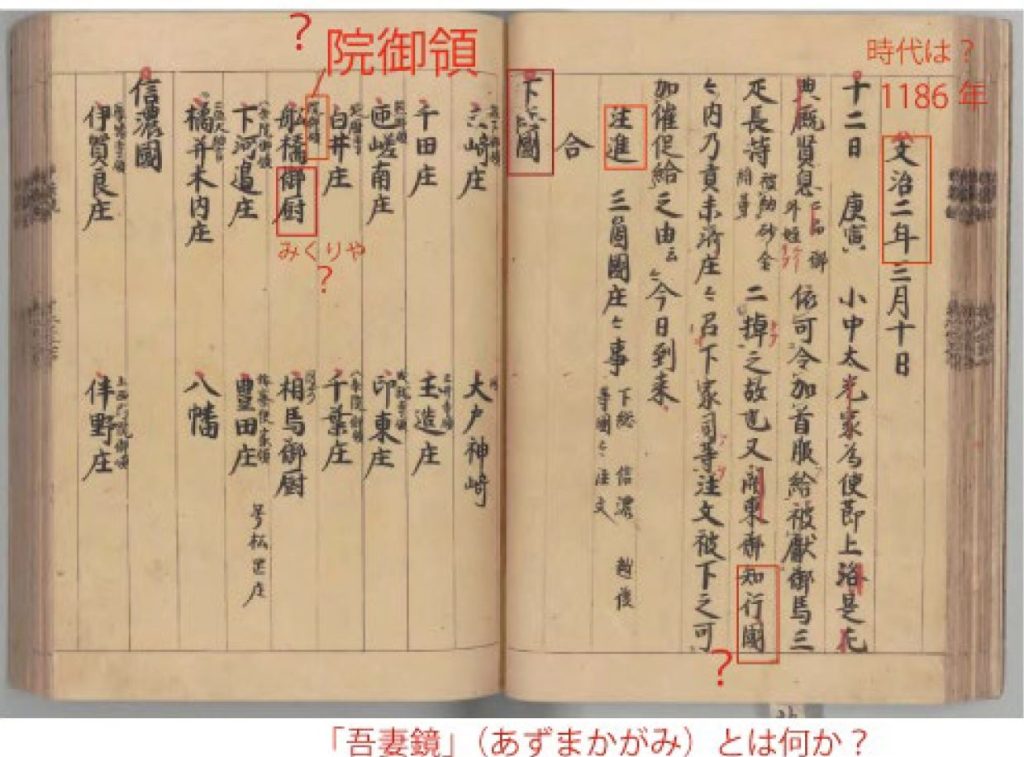 ?
院御領
時代は?
1186年
文治二年三月十日
十二日 庚寅 小中太光家為使節上洛是左
典厩賢息 二品御外姪 依可令加首服給被献御馬三
疋長持 被納砂金等 二棹之故也又關東御知行國
々内乃貢未済庄々召下家司等注文被下之可
加催促給之由云々今日到来
注進 三箇國庄々事 下総 信濃 越後 等國々注文
合
下総國
?
六崎庄 大戸神崎
千田庄 玉造庄
匝嵯南庄 印東庄
白井庄 千葉庄
院御領
舩橋御厨 相馬御厨
みくりや
?
下河邉庄 豊田庄 号松岡庄
橘并木内庄 八幡
信濃國
伊賀良庄 伴野庄
「吾妻鏡」(あずまかがみ)とは何か?